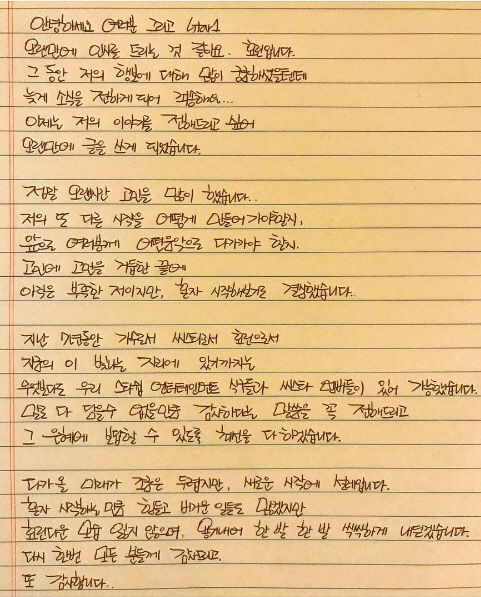 안녕하세요 여러분 그리고
오랜만에 인사를 드리는 것 같아요. 효린입니다.
그 동안 저의 행보에 대해 많이 궁금하셨을텐데
늦게 소식을 전하게 되어 죄송해요...
이제는 저의 이야기를 전해드리고 싶어
오랜만에 글을 쓰게 되었습니다.
정말 오랜시간 고민을 많이 했습니다..
저의 또 다른 시작을 어떻게 만들어가야할지,
앞으로 여러분께 어떤음악으로 다가가야 할지.
고민에 고민을 거듭한 끝에
아직은 부족한 저이지만, 혼자 시작해보기로 결심했습니다..
지난 7년동안 가수로서 씨스타로서 효린으로서
지금의 이 빛나는 자리에 있기까지는
무엇보다도 우리 스타쉽 엔터테인먼트 식구들과 씨스타 멤버들이 있어 가능했습니다.
말로 다 담을수 없을만큼 감사하다는 말씀을 꼭 전해드리고
그 은혜에 보답할 수 있도록 최선을 다하겠습니다.
다가올 미래가 조금은 두렵지만, 새로운 시작에 설레입니다.
혼자 시작하는 만큼 힘들고 버거운 일들도 많겠지만
효린다운 모습 잃지 않으며, 용기내어 한 발 한 발 씩씩하게 내딛겠습니다.
다시 한번 모든 분들께 감사드리고,
또 감사합니다..